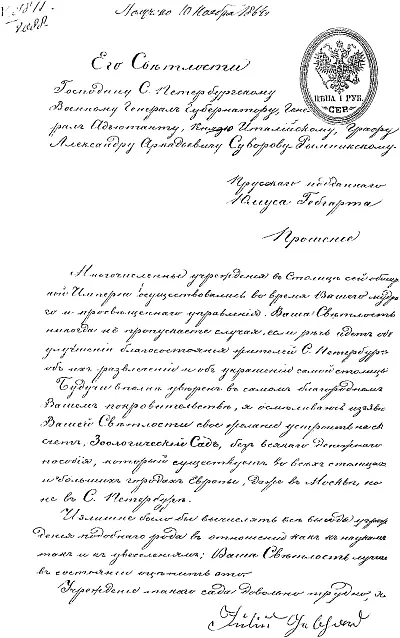 Получено 10 Ноября 1864 г.
Его Свѣтлости
Господину С. Петербургскому
Военному Генералъ Губернатору, Гене
ралъ Адъютанту, Князю Италійскому, Графу
Александру Аркадьевичу Суворову-Рымникскому.
ЦѢНА 1 РУБ.
СЕР.
Прусскаго подданнаго
Юліуса Гебгарта
Прошеніе
Многочисленныя учрежденія въ Столицѣ сей обшир
ной Имперіи осуществовались во время Вашего мудра
го и просвѣщеннаго управленія. Ваша Свѣтлость
никогда не пропускаете случая, если рѣчь идетъ объ
улучшеніи благосостоянія жителей С. Петербурга
объ ихъ развлеченіи и объ украшеніи самой столицы
Будучи вполнѣ увѣренъ въ самомъ благородномъ
Вашемъ покровительствѣ, я осмѣливаюсь изъяви
Вашей Свѣтлости свое желаніе устроить на св
счетъ, Зоологическій Садъ, безъ всякаго денежнаго
пособія, который существуетъ во всѣхъ столицахъ
и большихъ городахъ Европы, даже въ Москвѣ, но
не въ С. Петербургѣ.
Излишне было бы вычислять всѣ выгоды учреж
денія подобнаго рода въ отношеніи какъ къ наукамъ
такъ и къ увеселеніямъ; Ваша Свѣтлость лучше
въ состояніи оцѣнить это.
Учрежденіе такаго сада довольно трудно, я
Julius Gebhard